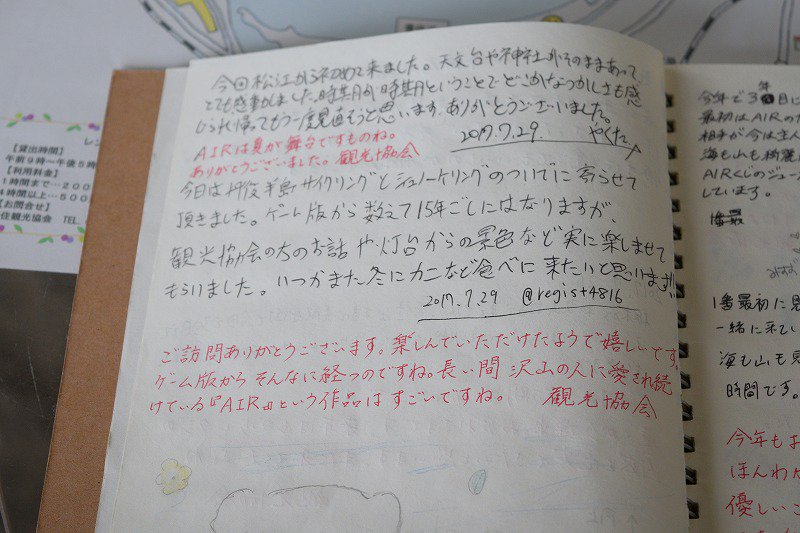 今回松江から初めて来ました。天文台や神社がそのままあって、
とても感動しました。時期が時期ということでどこかなつかしさも感
じられ帰ってもう一度見直そうと思います。ありがとうございました。
2017.7.29 やくた。
AIRは夏が舞台ですものね。
ありがとうございました。観光協会
今日は丹後半島サイクリングとシュノーケリングのついでに寄らせて
頂きました。ゲーム版から数えて15年ごしにはなりますが、
観光協会の方のお話や灯台からの景色など実に楽しませて
もらいました。いつかまた冬にカニなど食べに来たいと思います!!
2017.7.29 @regist4816
ご訪問ありがとうございます。楽しんでいただけたようで嬉しいです。
ゲーム版からそんなに経つのですね。長い間 沢山の人に愛され続
けている『AIR』という作品はすごいですね。 観光協会
【貸出時間】
午前9時～午後5時
【利用料金】
1時間まで…200
4時間以上…500
【お問合せ】
住観光協会 TEL
今年で3回目
最初はAIRの
相手が今は主人
海も山も綺麗
AIRくじのジュー
しています。
1番最
1番最初に見
一緒に来てい
海も山も見
時間です。
今年もお
ほんわか
優しいこ